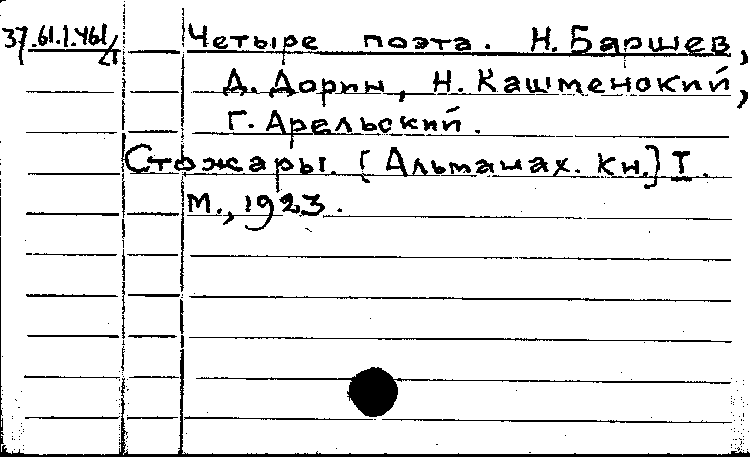 37.61.1.461/1
Четыре поэта. Н. Баршев,
Д. Дорин, Н. Кашменский,
Г. Арельский.
Стожары. [Альманах. Кн.] I.
М., 1923.